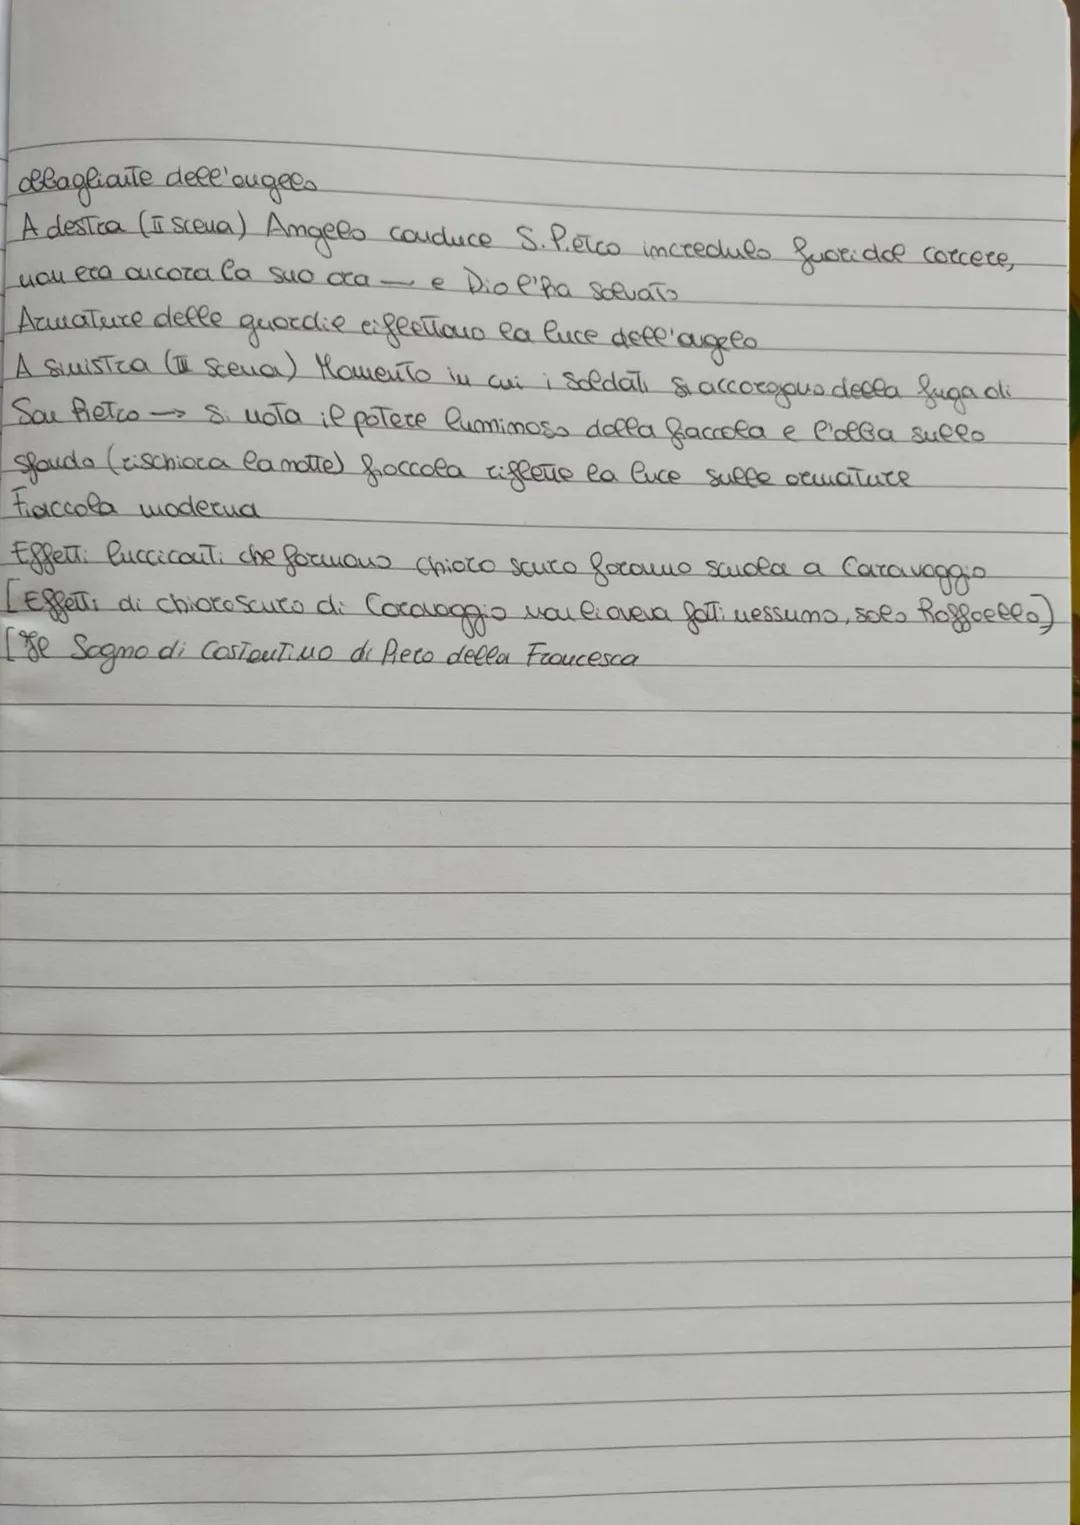 abbagliante dell'angelo
A destra (II scena) Angelo conduce S. Pietro incredulo fuori dal carcere,
non era ancora la sua ora — e Dio l'ha salvato
Armature delle guardie riflettono la luce dell'angelo
A sinistra (III scena) Momento in cui i soldati si accorgono della fuga di
San Pietro → Si nota il potere luminoso della fiaccola e l'alba sullo
sfondo (rischiara la notte) fiaccola riflette la luce sulle armature
Fiaccola moderna
Effetti luccicanti che formano chiaro scuro faranno scuola a Caravaggio
[Effetti di chiaroscuro di Caravaggio non li aveva fatti nessuno, solo Raffaello]
[Il Sogno di Costantino di Piero della Francesca